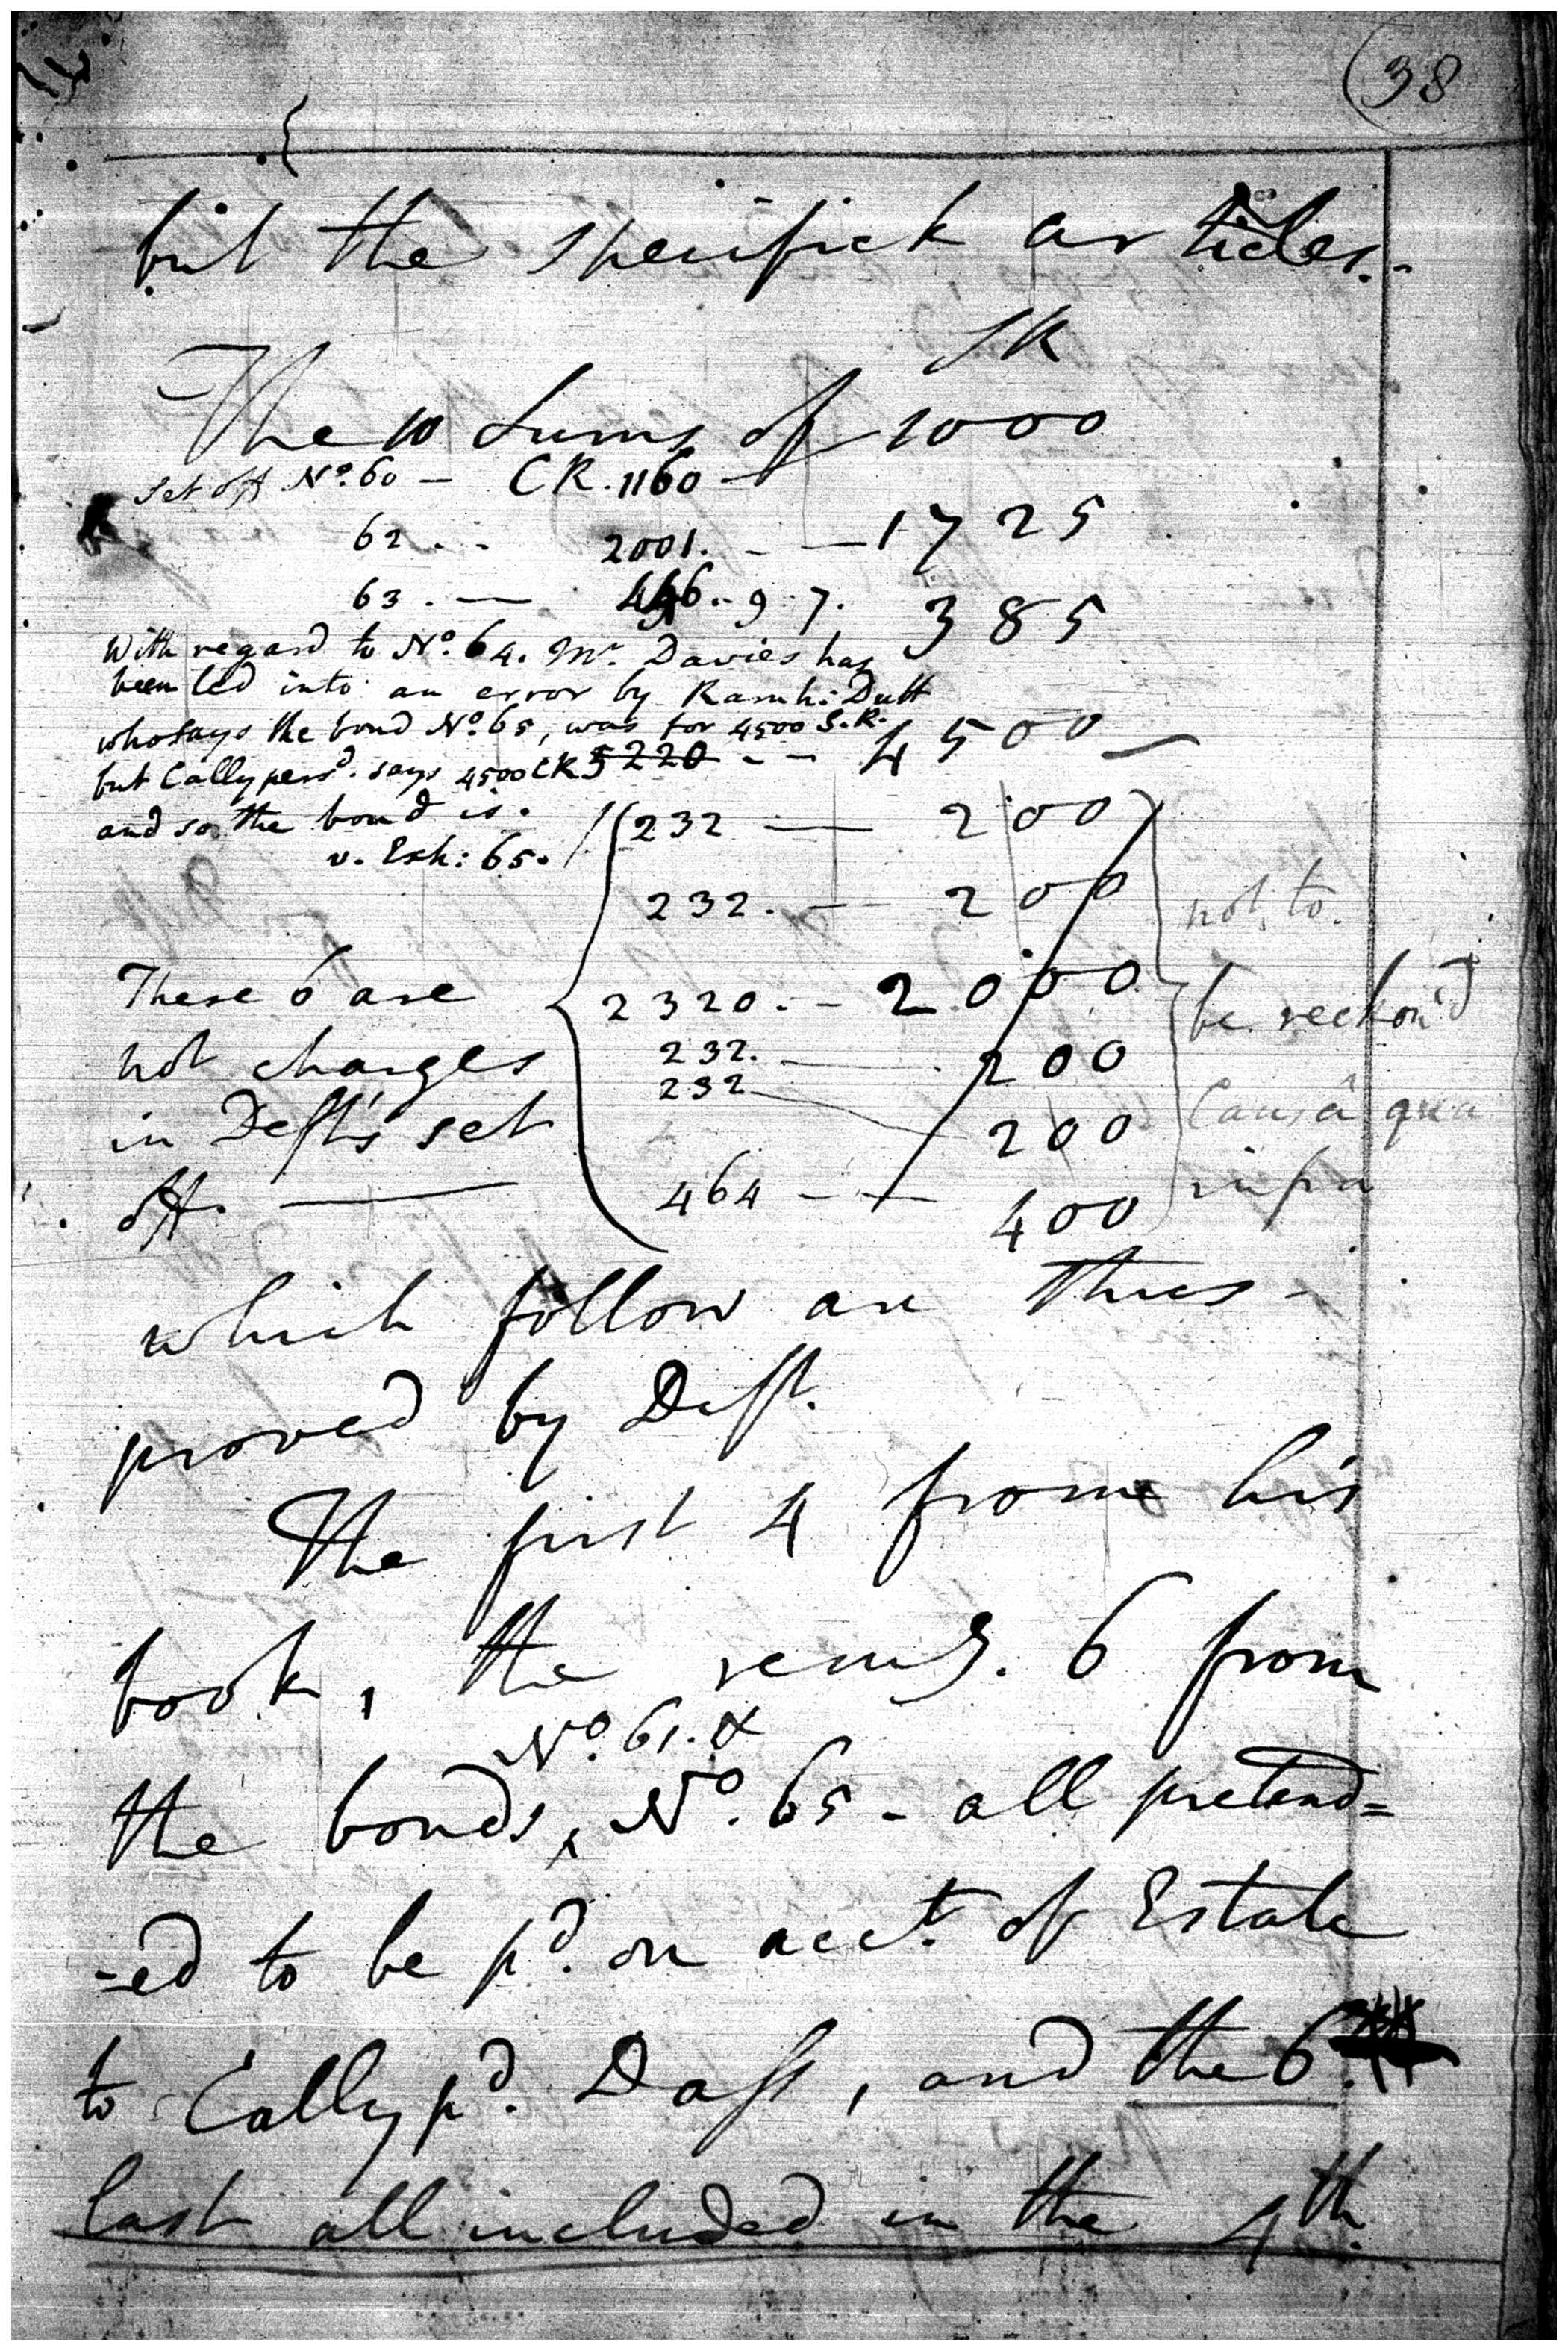 38
but the specifick articles.-
SR
The 10 Sums of 1000
set off No. 60 - CR. 1160 -
62 . - 2001. - - 1725
63 . - 446. - 9. 7. 385
With regard to No. 64. Mr. Davies has
been led into an error by Ramh: Dutt
who says the bond No. 65, was for 4500 S.R.
but Callypersd. says 4500 CR 5220 - - 4500 -
and so the bond is.
v. Exh: 65.
232 — 200
232. — 200 not to.
These 6 are 2320. - 2000 be reckon'd
not charges 232. — 200
232 — 200 Causâ qua
in Deft's set
off. — 464 - - 400 infra
which follow are thus -
proved by Deft.
The first 4 from his
book, the remg. 6 from
No. 61. &
the bonds, No. 65 - all pretend=
-ed to be pd. on acct. of Estate
to Cally pd. Dass, and the 6.
last all included in the 4th